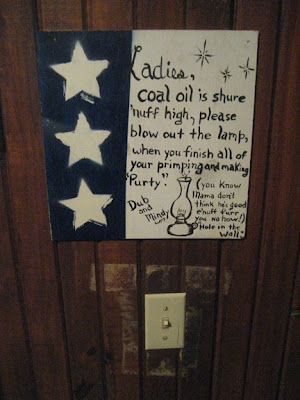 Ladies,
coal oil is shure
'nuff high, please
blow out the lamp,
when you finish all of
your primping and making
"Purty."
(you know
Mama don't
think he's good
e'nuff furr
you no how!)
Hole in the
Wall.
Dub
and
Mindy